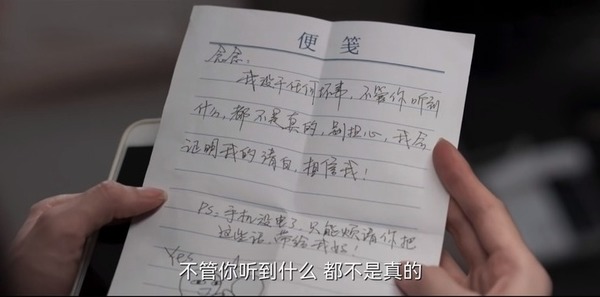 便笺
念念:
我没干任何坏事,不管你听到
什么,都不是真的,别担心,我会
证明我的清白,相信我!
PS:手机没电了,只能烦请你把
这些话,带给我
Yes
不管你听到什么 都不是真的